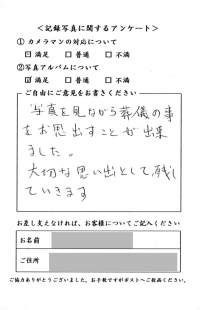 ＜記録写真に関するアンケート＞
① カメラマンの対応について
☑ 満足 □ 普通 □ 不満
②写真アルバムについて
☑ 満足 □ 普通 □ 不満
ご自由にご意見をお書きください
写真を見ながら葬儀の事
をお思出すことが出来
ました。
大切な思い出として残し
ていきます
お差し支えなければ、お客様についてご記入ください
お名前
ご住所
ご協力ありがとうございました。お手数ですがポストへご投函ください。